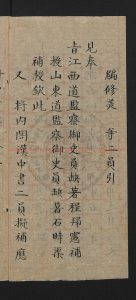 編修吳 等二員引
見奉
旨江西道監察御史員缺著程邦憲補
授山東道監察御史員缺著石時榘
補授欽此
又 将内閣漢中書二員擬補應